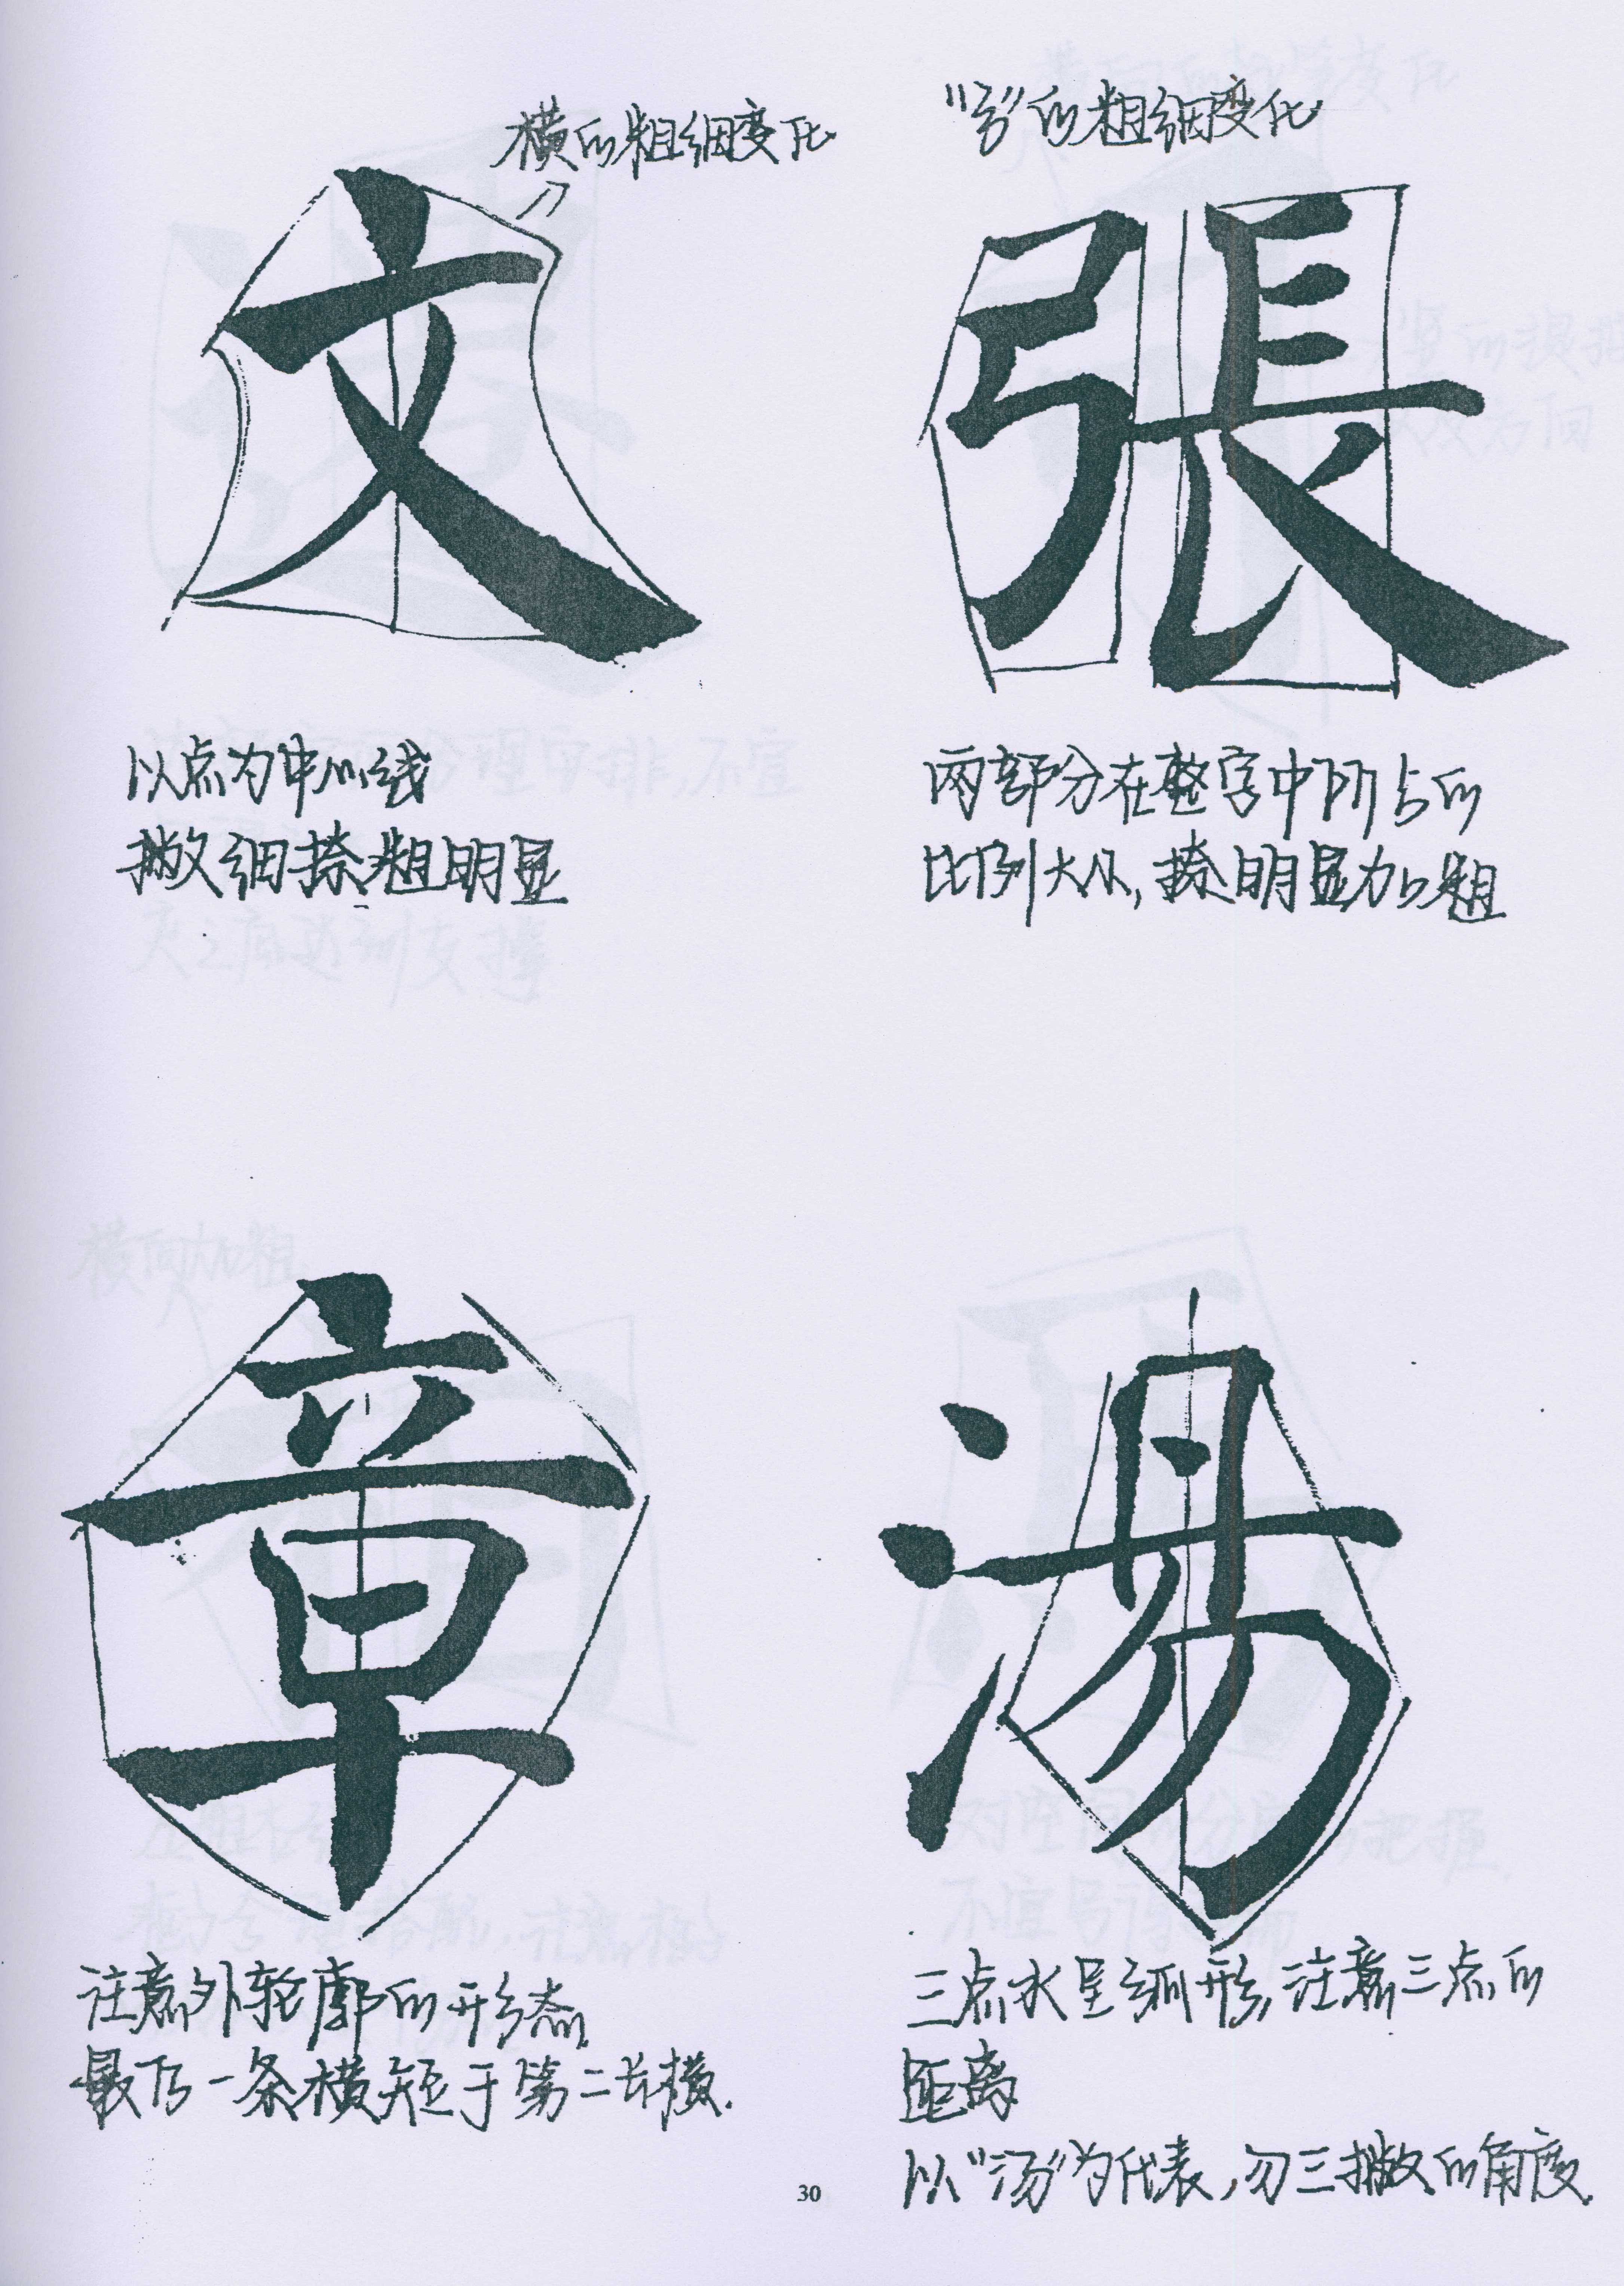 横的粗细变化
文
以点为中心线
撇细捺粗明显
"弓"的粗细变化
張
两部分在整字中所占的
比例大小,捺明显加粗
章
注意外轮廓的形态
最下一条横短于第二长横.
湯
三点水呈弧形,注意三点的
距离
以"汤"为代表,勿三撇的角度.
30